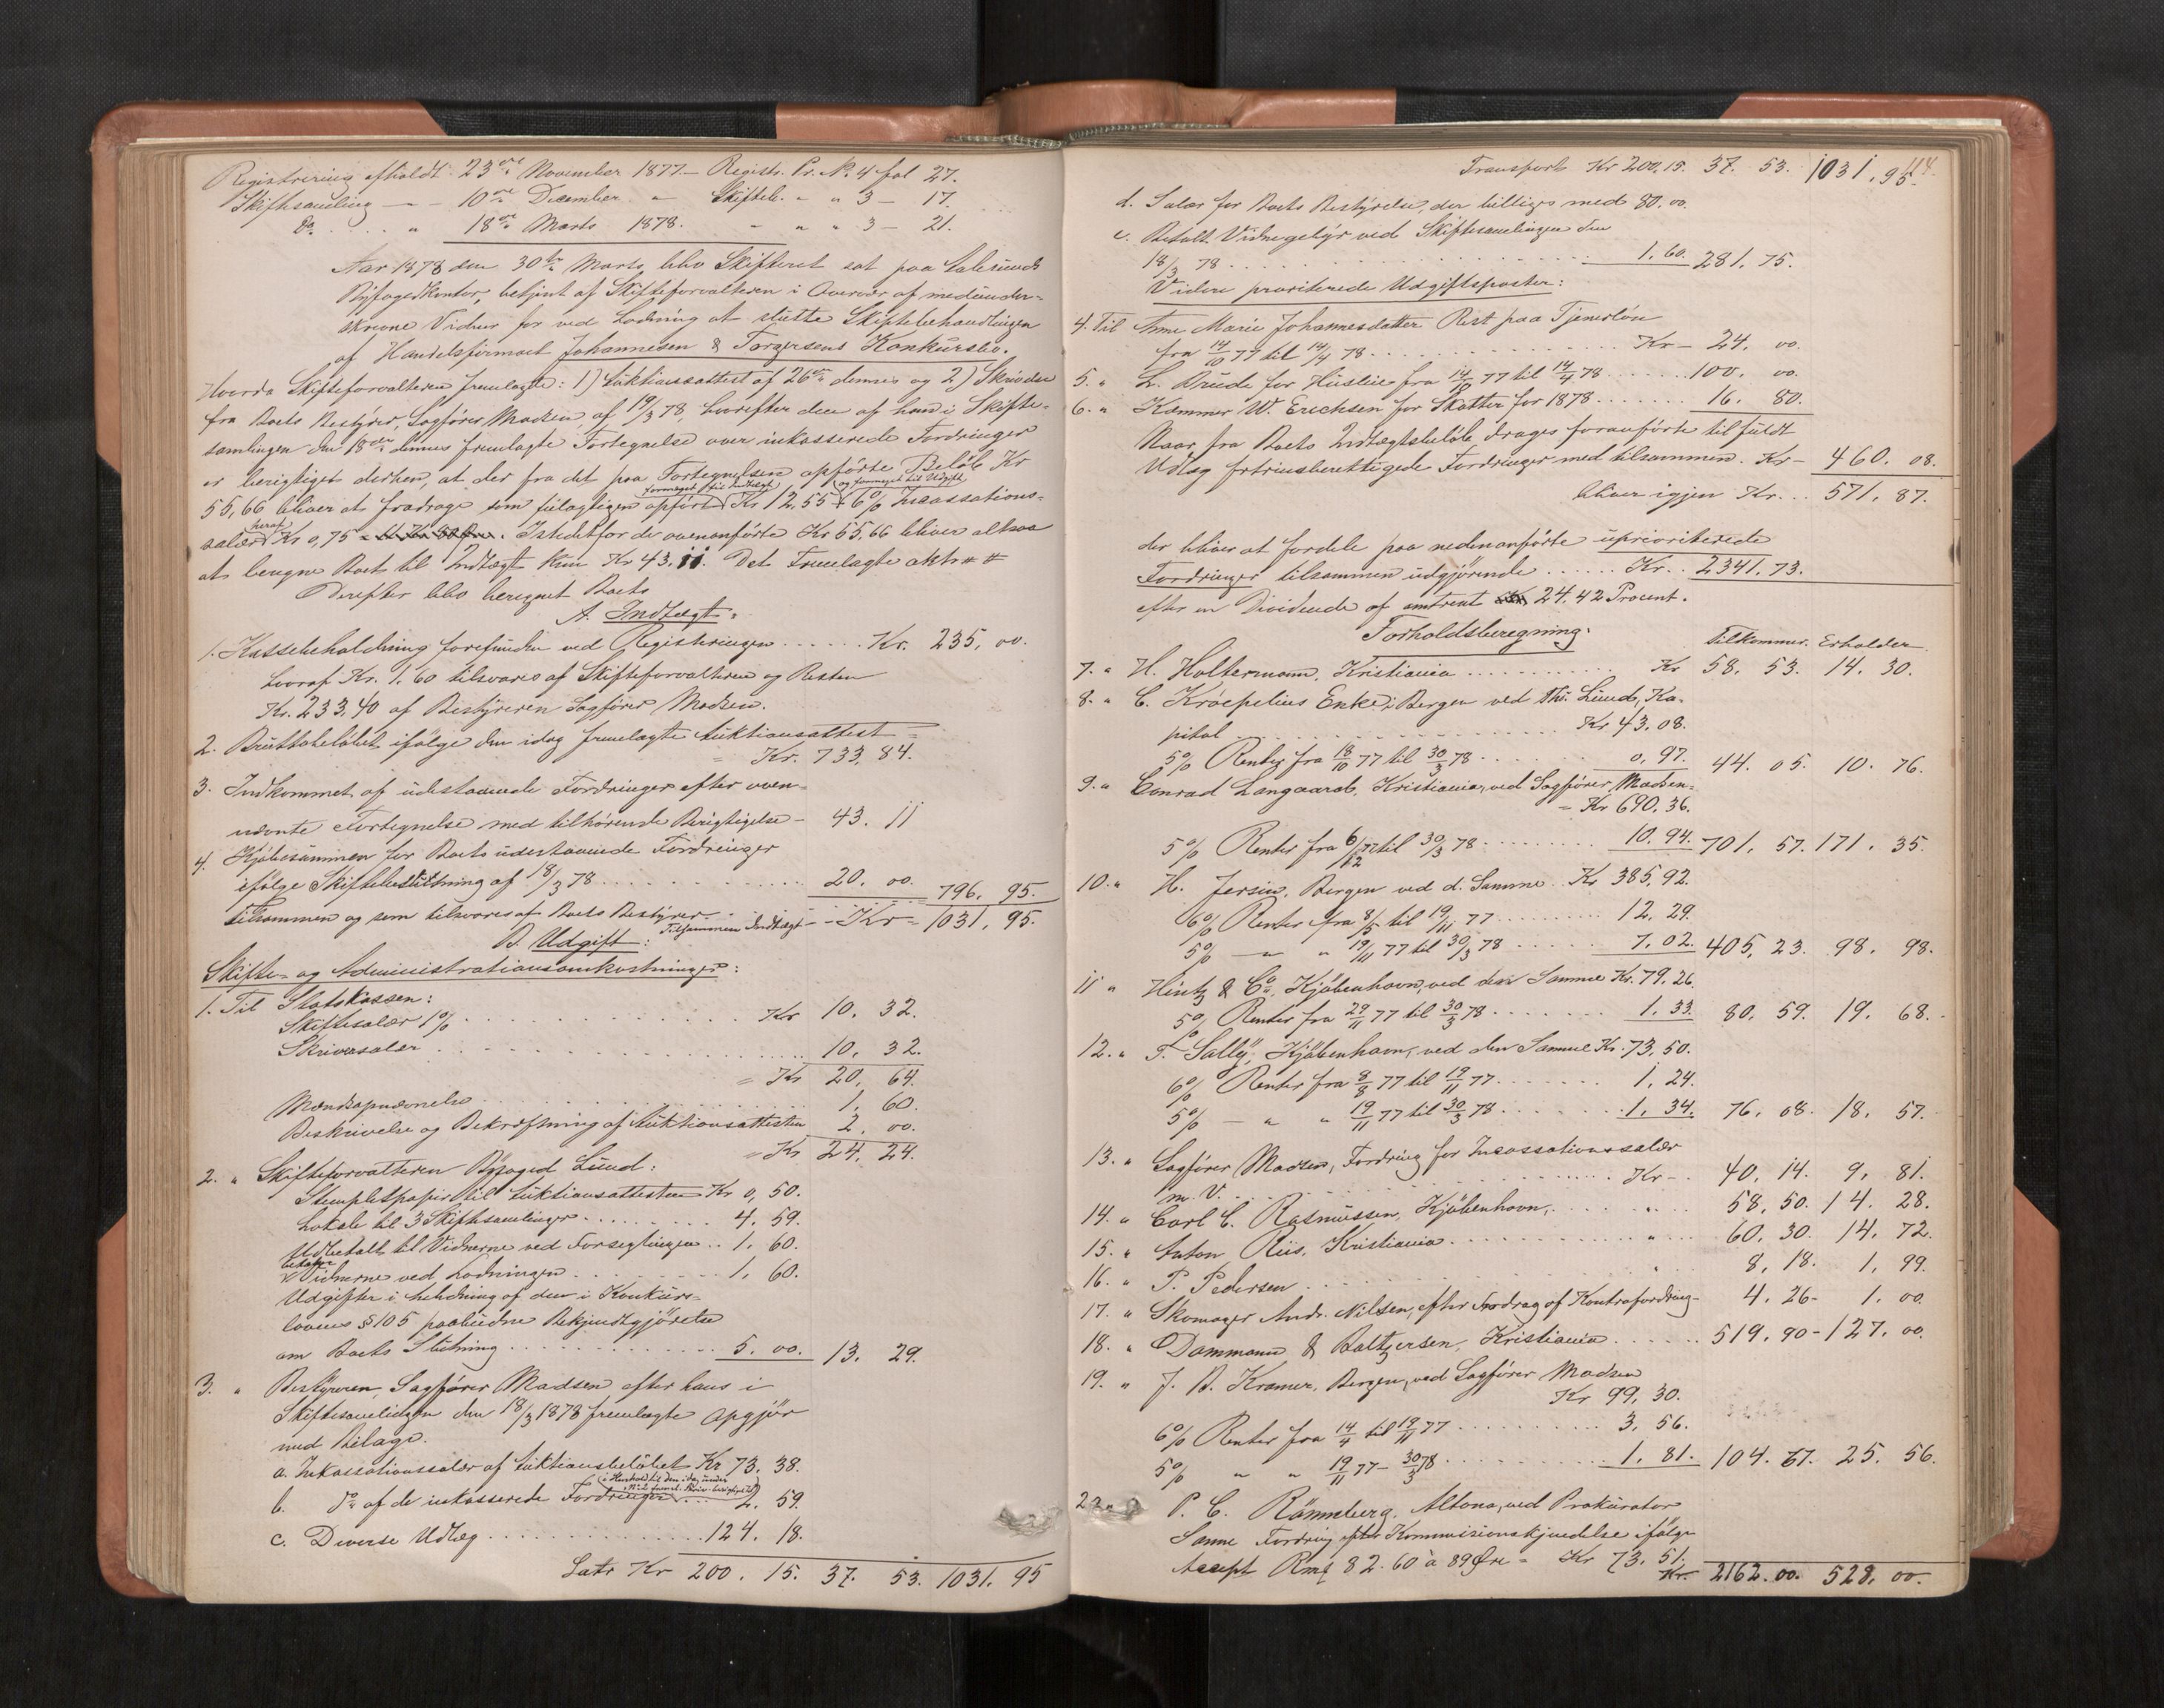 Registrering afholdt 23de November 1877 – Registr. Pr. N. 4 fol 27.
Skiftesamling – – 10de December " Skifteb. " " 3 – 17.
Do. . . . " 18de Marts 1878. " " " 3 – 21.
Aar 1878 den 30te Marts blev Skifteret sat paa Aalesunds
Byfogedkontor, betjent af Skifteforvalteren i Overvær af medunder-
skrevne Vidner for ved Lodning at slutte Skiftebehandlingen
af Handelsfirmaet Johannesen & Torgersens Konkursbo.
Hvorda Skifteforvalteren fremlagte: 1) Auktionsattest af 26de dennes og 2) Skrivelse
fra Boets Bestyrer, Sagfører Madsen, af 19/3 78, hvorefter den af ham i Skifte-
samlingen den 18de dennes fremlagte Fortegnelse over inkasserede Fordringer
er berigtiget derhen, at der fra det paa Fortegnelsen opførte Beløb Kr
55,66 bliver at fradrage som feilagtigen opført formeget til Indtægt Kr 12,55 og formeget til Udgift 6% Incassations-
salær heraf Kr 0,75. Istedetfor de ovenanførte Kr 55,66 bliver altsaa
at beregne Boets til Indtægt kun Kr 43.11. Det Fremlagte aktr # #
Derefter blev beregnet Boets
A. Indtægt:
1. Kassebeholdning forefunden ved Registreringen . . . . . . Kr. 235, 00.
hvoraf Kr. 1,60 tilsvares af Skifteforvalteren og Resten
Kr. 233,40 af Bestyreren Sagfører Madsen.
2. Bruttobeløbet ifølge den idag fremlagte Auktionsattest =
= Kr. 733, 84.
3. Indkommet af udestaaende Fordringer efter oven-
nævnte Fortegnelse med tilhørende Berigtigelse – 43. 11
4. Kjøbesummen for Boets udestaaende Fordringer
ifølge Skiftebeslutning af 18/3 78 . . . . . . 20. 00. 796. 95.
tilsammen og som tilsvares af Boets Bestyrer. – Tilsammen Indtægt – – Kr = 1031, 95.
B. Udgift:
Skifte- og Administrationsomkostninger:
1. Til Statskassen:
Skiftesalær 1% . . . . . . Kr 10. 32.
Skriversalær . . . . . . 10, 32.
= Kr 20, 64.
Mandsopnævnelse . . . . . . 1. 60.
Beskrivelse og Bekræftning af Auktionsattesten 2. 00.
= Kr 24, 24.
2. " Skifteforvalteren Byfoged Lund:
Stempletpapir til Auktionsattesten Kr 0, 50.
Lokale til 3 Skiftesamlinger . . . . . 4. 59.
Udbetalt til Vidnerne ved Forseglingen . . 1. 60.
Vidnerne ved Lodningen . . . . . 1. 60.
Udgifter i Anledning af den i Konkurs-
lovens § 105 paabudne Bekjendtgjørelse
om Boets Slutning . . . . . . 5. 00. 13. 29.
3. " Bestyreren, Sagfører Madsen efter hans i
Skiftesamlingen den 18/3 1878 fremlagte Opgjør
med Bilage.
a. Inkassationssalær af Auktionsbeløbet Kr 73. 38.
(i Henhold til den idag under
N. 2 freml. Skriv. berigtiget til)
b. Do af de inkasserede Fordringer . . . 2. 59.
c. Diverse Udlæg . . . . . . 124. 18.
Latr Kr 200. 15. 37. 53. 1031. 95
114.
Transport Kr 200,15. 37. 53. 1031, 95.
d. Salær for Boets Bestyrelse, der billiges med 80.00.
e. Betalt Vidnegebyr ved Skiftesamlingen den
18/3 78 . . . . . . 1.60. 281. 75.
Videre prioriterede Udgiftsposter:
4. Til Anne Marie Johannesdatter Rest paa Tjenerløn
fra 14/10 77 til 14/4 78 . . . . . . Kr – 24. 00.
5. " L. Brude for Husleie fra 14/10 77 til 14/4 78 . . . . . . 100. 00.
6. " Kæmner W. Erichsen for Skatter for 1878 . . . . . . 16. 80.
Naar fra Boets Indtægtsbeløb drages foranførte til fuldt
Udlæg fortrinsberettigede Fordringer med tilsammen. Kr – 460. 08.
bliver igjen Kr. . . 571. 87.
der bliver at fordele paa nedenanførte uprioriterede
Fordringer tilsammen udgjørende . . . . . . Kr. . 2341.73.
efter en Dividende af omtrent 24.42 Procent.
Forholdsberegning: Tilkommer. Erholder
7. " H. Holtermann, Kristiania . . . . . . Kr 58. 53. 14. 30.
8. " C. Kræpelius Enke i Bergen ved Th. Lund, Ka-
pital . . . . . . Kr 43.08.
5% Renter fra 18/10 77 til 30/3 78 . . . . . . 0,97. 44. 05. 10. 76.
9. " Conrad Langaard, Kristiania, ved Sagfører Madsen =
= Kr 690.36.
5% Renter fra 6/12 77 til 30/3 78 . . . . . . 10.94. 701. 57. 171. 35.
10. " H. Jersin, Bergen ved d. Samme . Kr 385,92.
6% Renter fra 8/5 til 19/11 77 . . . . . . 12. 29.
5% – " 19/11 77 til 30/3 78 . . . . . . 7,02. 405, 23. 98. 98.
11 " Hintz & Co, Kjøbenhavn, ved den Samme Kr. 79.26.
5% Renter fra 29/11 77 til 30/3 78 . . . . . . 1.33. 80. 59. 19. 68.
12. " F. Sally, Kjøbenhavn, ved den Samme Kr. 73,50.
6% Renter fra 8/8 77 til 19/11 77 . . . . . . 1,24.
5% – " " 19/11 77 til 30/3 78 . . . . . . 1.34. 76. 08. 18. 57.
13. " Sagfører Madsen, Fordring for Incassationssalær
m. V. . . . . . . Kr – . 40. 14. 9, 81.
14. " Carl C. Rasmussen, Kjøbenhavn, . . . . . " . 58, 50. 14. 28.
15. " Anton Riis, Kristiania . . . . . . " 60. 30. 14. 72.
16. " P. Pedersen . . . . . . " 8, 18. 1, 99.
17. " Skomager Andr. Nilsen, efter Fradrag af Kontrafordring – 4. 26 – 1. 00.
18. " Dammann & Baltzersen, Kristiania . . . . . . 519. 90 – 127. 00.
19. " J. B. Kramer, Bergen, ved Sagfører Madsen
Kr 99,30.
6% Renter fra 14/4 til 19/11 77 . . . . . . 3,56.
5% " " 19/11 77 – 30/3 78 . . . . . . 1.81. 104. 67. 25. 56.
20 " P. C. Rönneberg, Altona, ved Prokurator
Sanne Fordring efter Kommisionskjendelse ifølge
Accept Rmq 82.60 à 89 Øre = Kr 73.51.
Kr. 2162.00. 528. 00.